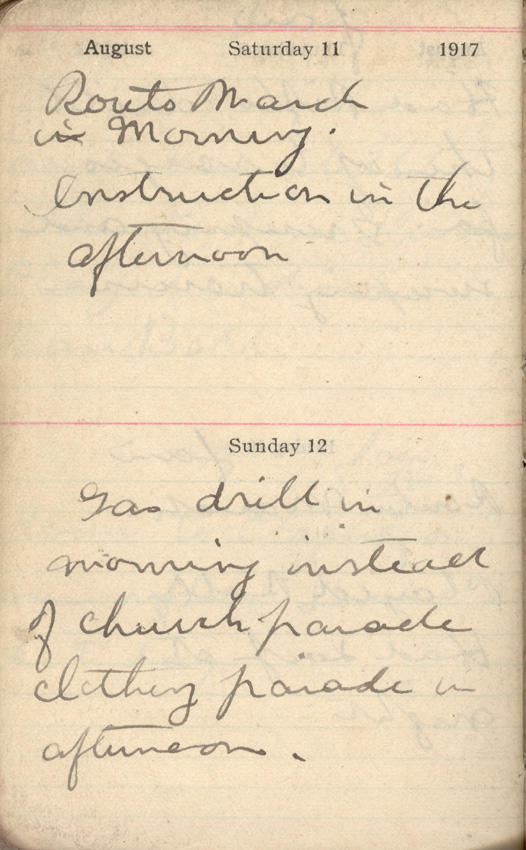 August Saturday 11 1917
Routo March
in Morning.
Instruction in the
afternoon
Sunday 12
Gas drill in
morning instead
of church parade
clothing parade in
afternoon.